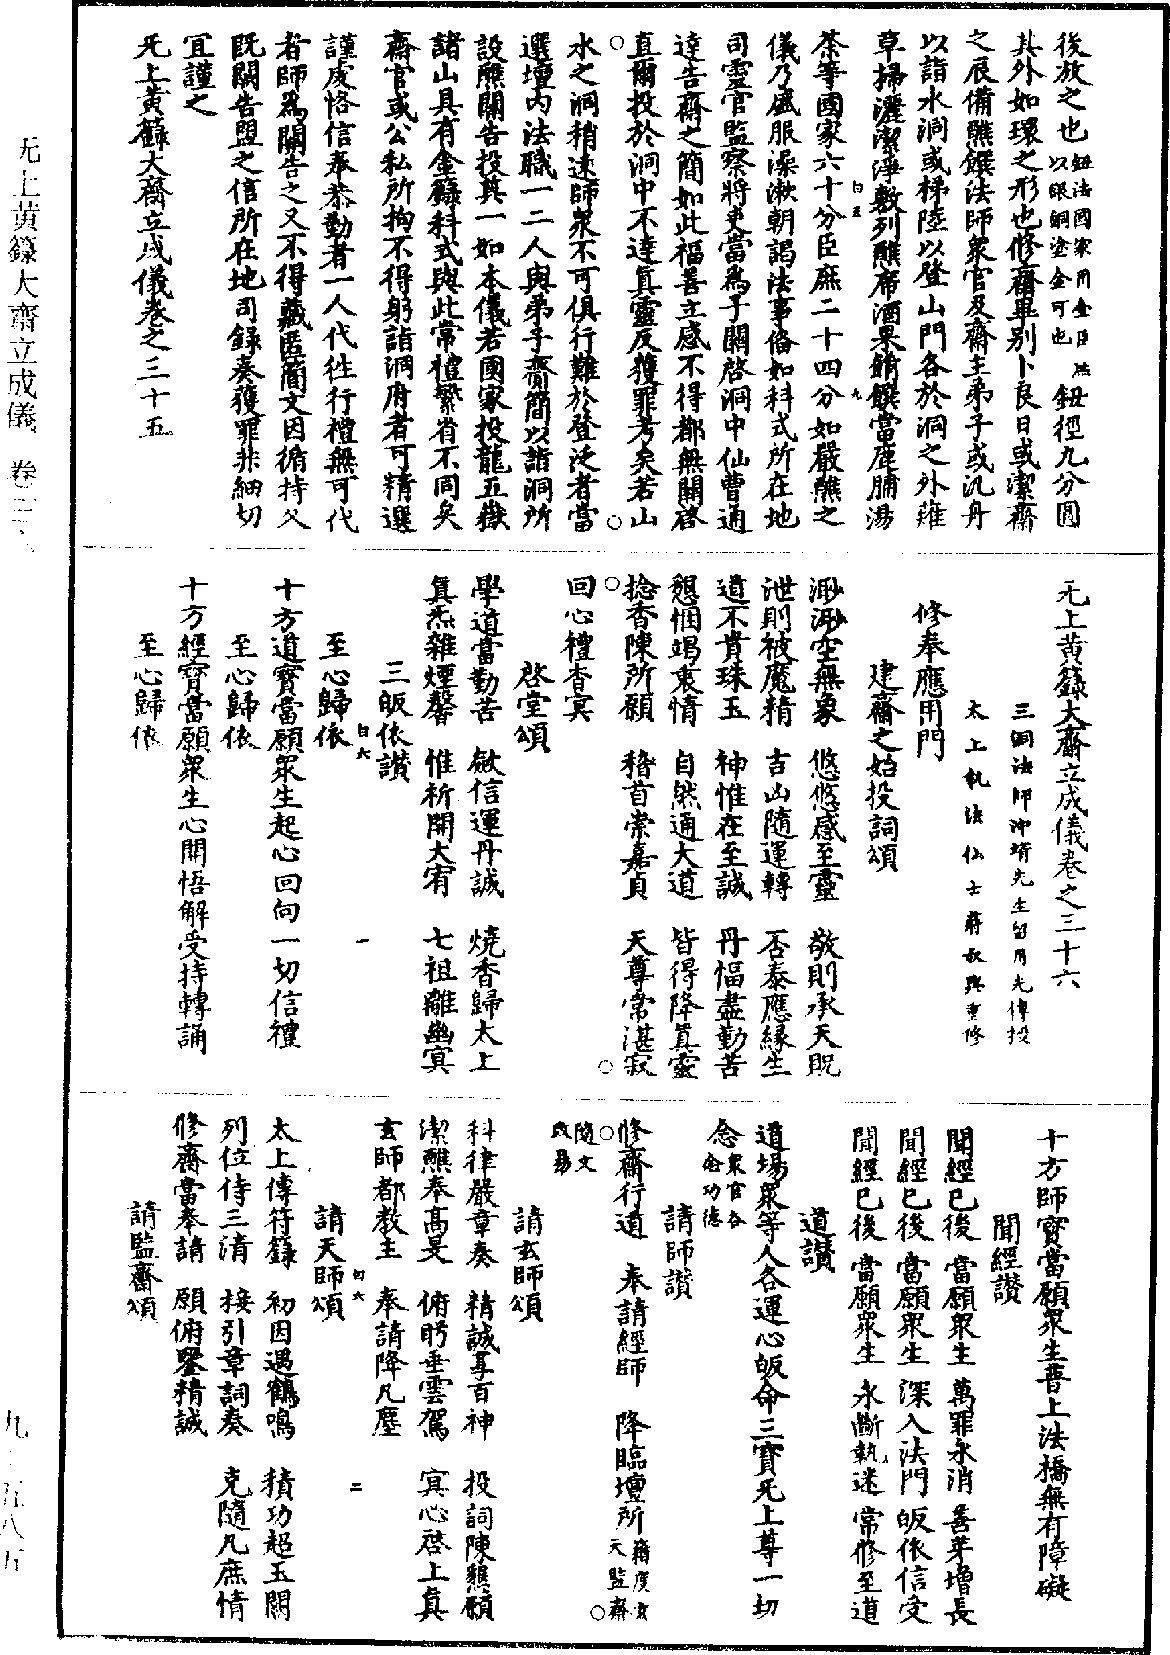 後放之也鈕法國家用金臣庶以銀銅塗金可也鈕徑九分圓
其外如環之形也修齋畢别卜良日或潔齋
之辰備醮饌法師衆官及齋主弟子或汎丹
以詣水洞或梯陸以登山門各於洞之外薙
草掃灑潔淨敷列醮席酒果餚饌當鹿脯湯
茶等國家六十分臣庶二十四分如嚴醮之
儀乃盛服澡漱朝謁法事俻如科式所在地
司靈官監察將吏當爲子關啓洞中仙曹通
達告齋之簡如此福善立感不得都無關啓
直爾投於洞中不達真靈反獲罪考矣若山
水之洞稍逺師衆不可俱行難於登泛者當
選壇内法職一二人與弟子齋簡以詣洞所
設醮關告投其一如本儀若國家投龍五嶽
諸山具有金籙科式與此常禮繁省不同矣
齋官或公私所拘不得躬詣洞府者可精選
謹虔恪信奉恭勤者一人代徃行禮無可代
者師爲關告之又不得藏匿簡文因循持父
既關告盟之信所在地司錄奏獲罪非細切
宜謹之
无上黄籙大齋立成儀卷之三十五
无上黄籙大齋立成儀卷之三十六
三洞法師沖靖先生留用光傳授
太上執法仙士蔣叔輿重修
修奉應用門
建齋之始投詞頌
渺渺空無象 悠悠感至靈 敬則承天貺
泄則被魔精 吉凶隨運轉 否泰應緣生
道不貴珠玉 神惟在至誠 丹愊盡勤苦
懇悃竭衷情 自然通大道 皆得降真靈
捻香陳所願 稽首崇嘉貞 天尊常湛寂
回心禮杳冥
啓堂頌
學道當勤苦 斂信運丹誠 燒香歸太上
真炁雜煙馨 惟祈開大宥 七祖離幽冥
三皈依讃
至心歸依
十方道寳當願衆生起心回向一切信禮
至心歸依
十方經寳當願衆生心開悟解受持轉誦
至心歸依
十方師寳當願衆生普上法橋無有障礙
聞經讃
聞經已後 當願衆生 萬罪永消 善芽增長
聞經已後 當願衆生 深入法門 皈依信受
聞經已後 當願衆生 永斷執迷 常修至道
道讃
道場衆等人各運心皈命三寳无上尊一切
念衆官各念功德
請師讃
修齋行道 奉請經師 降臨壇所籍度玄天監齋
隨文改易
請玄師頌
科律嚴章奏 精誠孚百神 投詞陳懇願
潔醮奉高旻 俯盻垂雲駕 冥心啓上真
玄師都教主 奉請降凡塵
請天師頌
太上傳符籙 初因遇鶴鳴 積功超玉闕
列位侍三清 接引章詞奏 克隨凡庶情
修齋當奉請 願俯鑒精誠
請監齋頌
无上黄籙大齋立成儀 卷三
九 五八五